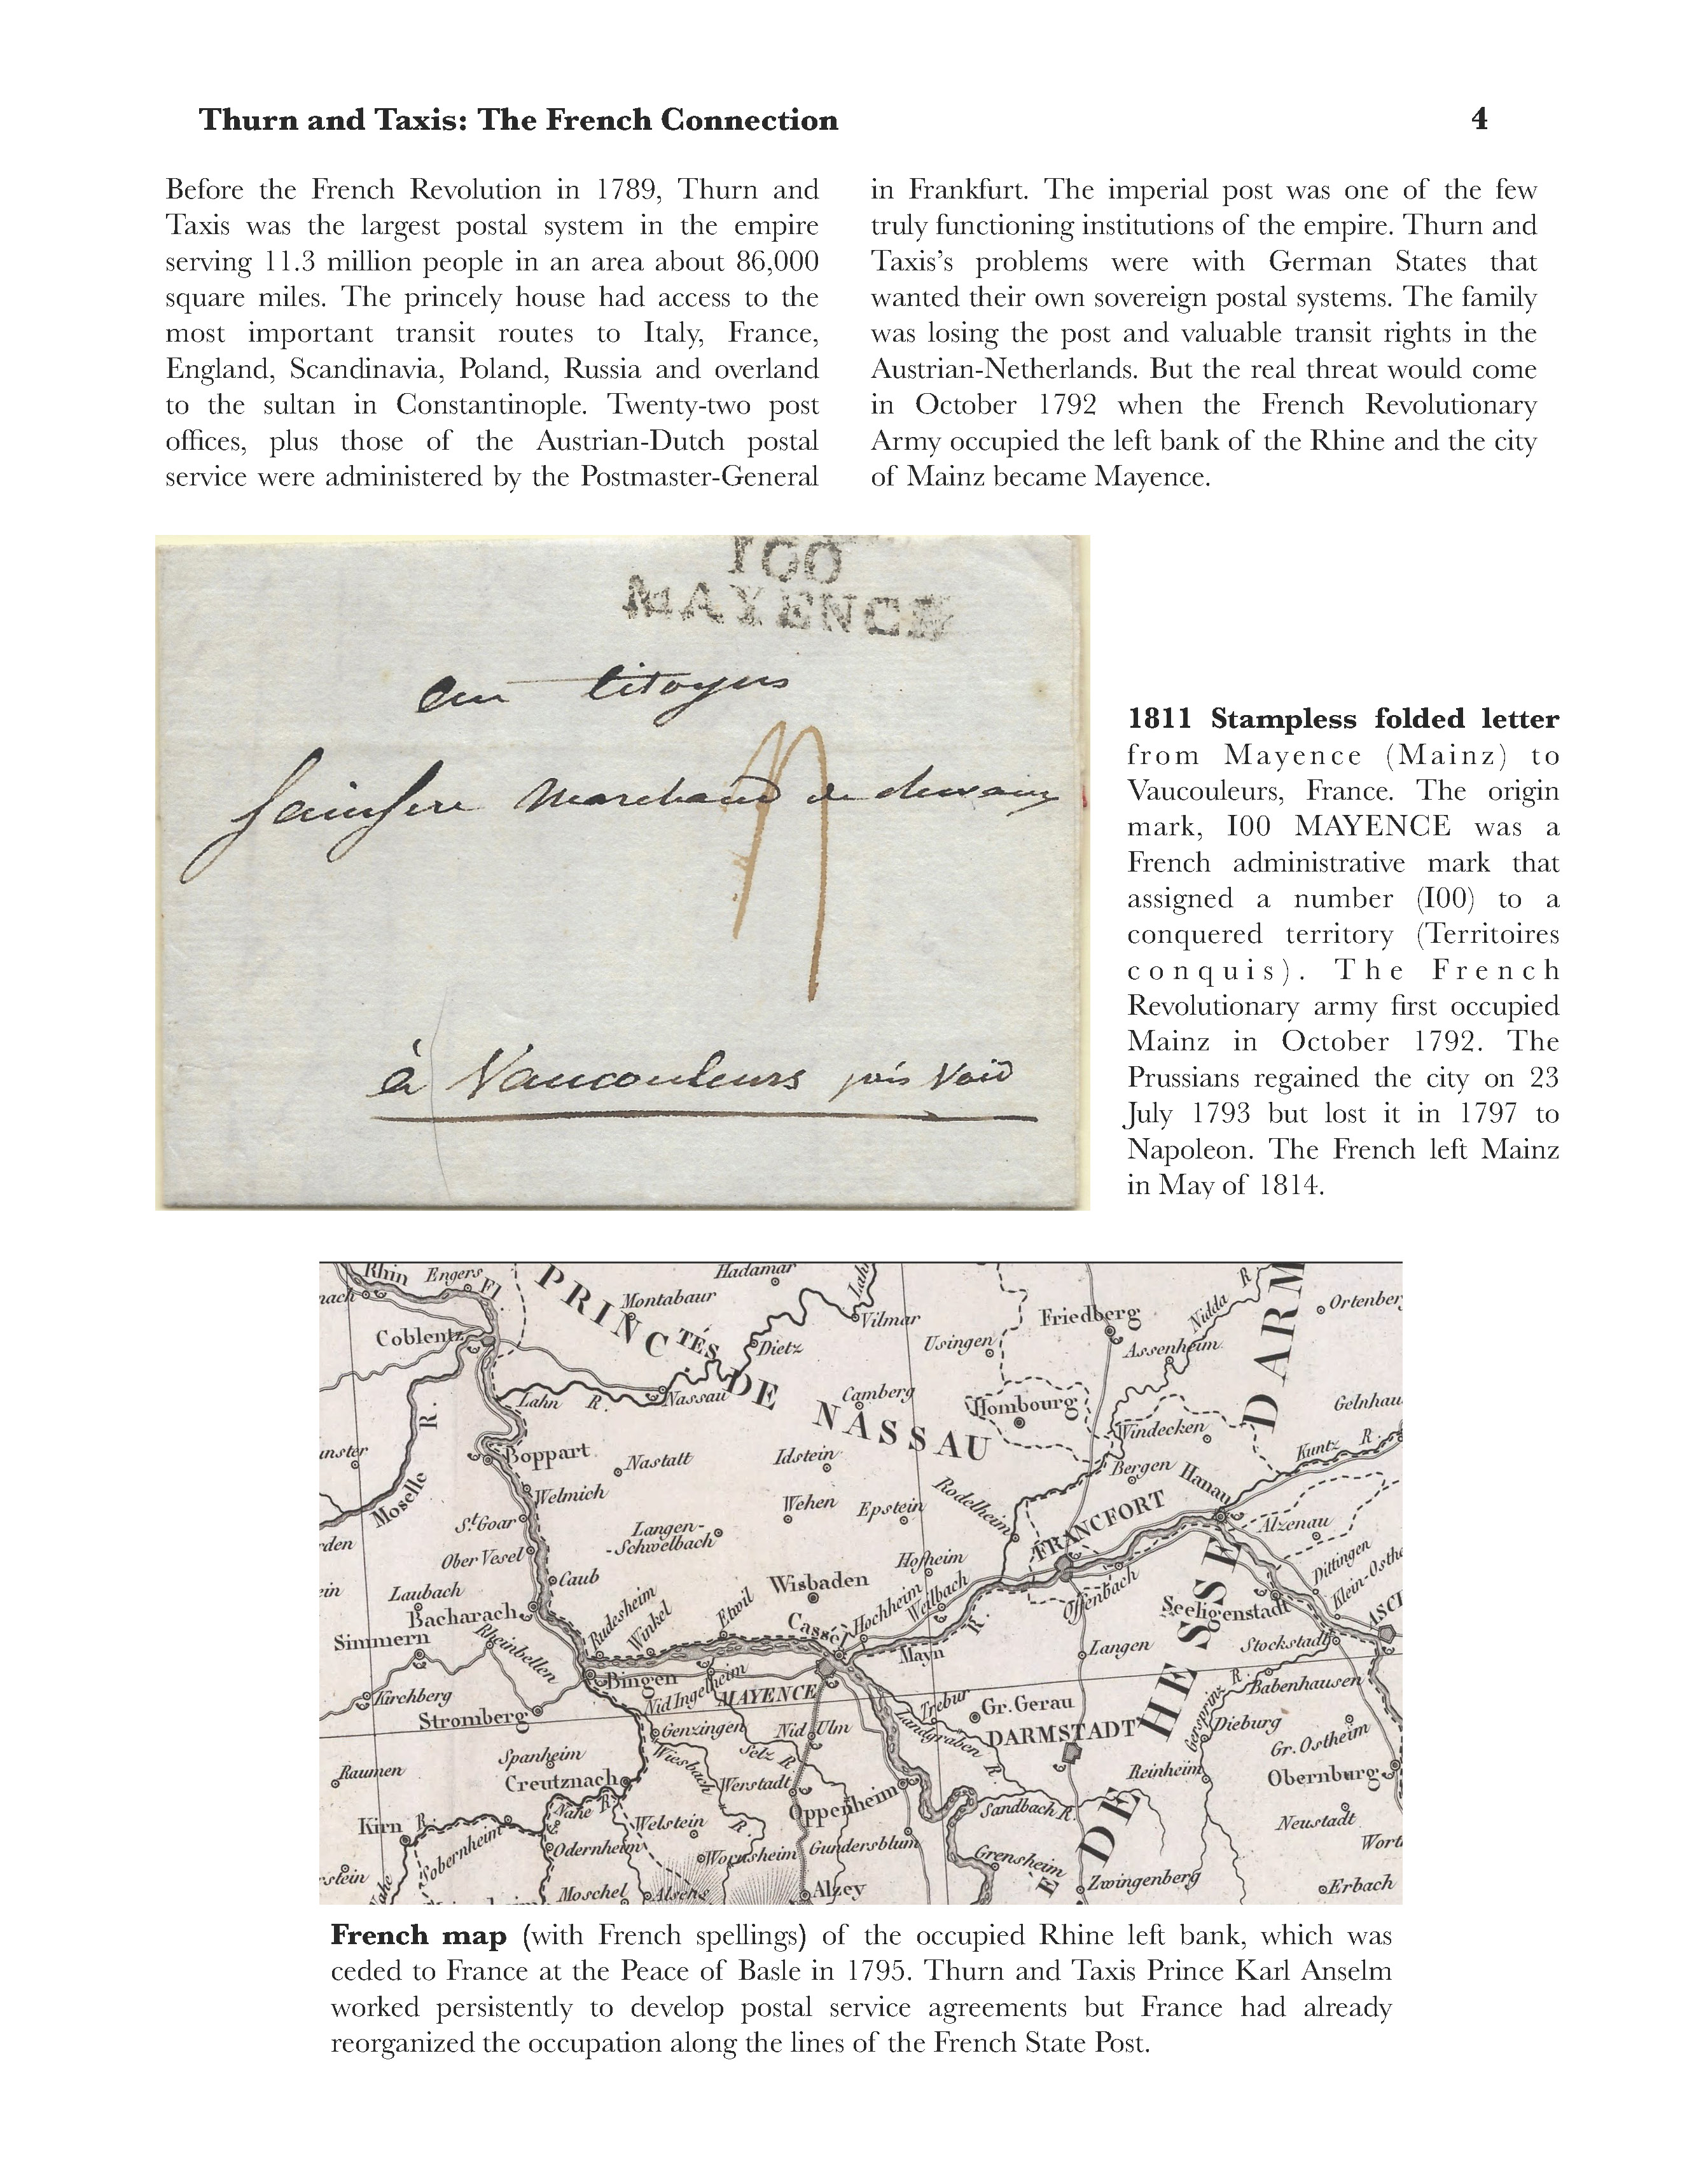 Thurn and Taxis: The French Connection
4
Before the French Revolution in 1789, Thurn and
Taxis was the largest postal system in the empire
serving 11.3 million people in an area about 86,000
square miles. The princely house had access to the
most important transit routes to Italy, France,
England, Scandinavia, Poland, Russia and overland
to the sultan in Constantinople. Twenty-two post
offices, plus those of the Austrian-Dutch postal
service were administered by the Postmaster-General
in Frankfurt. The imperial post was one of the few
truly functioning institutions of the empire. Thurn and
Taxis's problems were with German States that
wanted their own sovereign postal systems. The family
was losing the post and valuable transit rights in the
Austrian-Netherlands. But the real threat would come
in October 1792 when the French Revolutionary
Army occupied the left bank of the Rhine and the city
of Mainz became Mayence.
100
MAYENCE
Au Citoyens
Marchand de
à Vaucouleurs Void
1811 Stampless folded letter
from Mayence (Mainz) to
Vaucouleurs, France. The origin
mark, I00 MAYENCE was a
French administrative mark that
assigned a number (I00) to a
conquered territory (Territoires
conquis). The French
Revolutionary army first occupied
Mainz in October 1792. The
Prussians regained the city on 23
July 1793 but lost it in 1797 to
Napoleon. The French left Mainz
in May of 1814.
Rhin
Engers
Fl.
Hadamar
Montabaur
PRINC.TÉS DE NASSAU
Lahn
Vilmar
Usingen
Friedberg
Nidda R.
Assenheim
Ortenber
DARM
Coblentz
Dietz
Lahn R.
Nassau
Camberg
Hombourg
Windecken
Gelnhau
Kuntz R.
Moselle R.
Boppart
Nastatt
Idstein
Bergen
Hanau
Welmich
Wehen
Epstein
Rodelheim
FRANCFORT
St. Goar
Langen-
-Schwelbach
Alzenau
Ober Vesel
Caub
Hofheim
Offenbach
Dittingen
Klein-Osthe
Laubach
Bacharach
Wisbaden
Weilbach
Hochheim
Seeligenstadt
ASCH
Simmern
Rheinbellen
Rudesheim
Winkel
Etwil
Cassel
Mayn R.
Langen
Stockstadt
Kirchberg
Stromberg
Bingen
Nid Ingelheim
MAYENCE
Trebur
Gr. Gerau
Babenhausen
Gersprinz R.
Genzingen
Nid Ulm
Landgraben R.
DARMSTADT
HESSE DE
Dieburg
Gr. Ostheim
Raumen
Spanheim
Creutznach
Wiesbach R.
Selz R.
Werstadt
Reinheim
Obernburg
Kirn
Nahe R.
Welstein
Oppenheim
Sandbach R.
Neustadt
Sobernheim
Odernheim
Wornsheim
Gundersblum
Grensheim
Wort
Nahe R.
Moschel
Alsens
Alzey
Zwingenberg
Erbach
French map (with French spellings) of the occupied Rhine left bank, which was
ceded to France at the Peace of Basle in 1795. Thurn and Taxis Prince Karl Anselm
worked persistently to develop postal service agreements but France had already
reorganized the occupation along the lines of the French State Post.